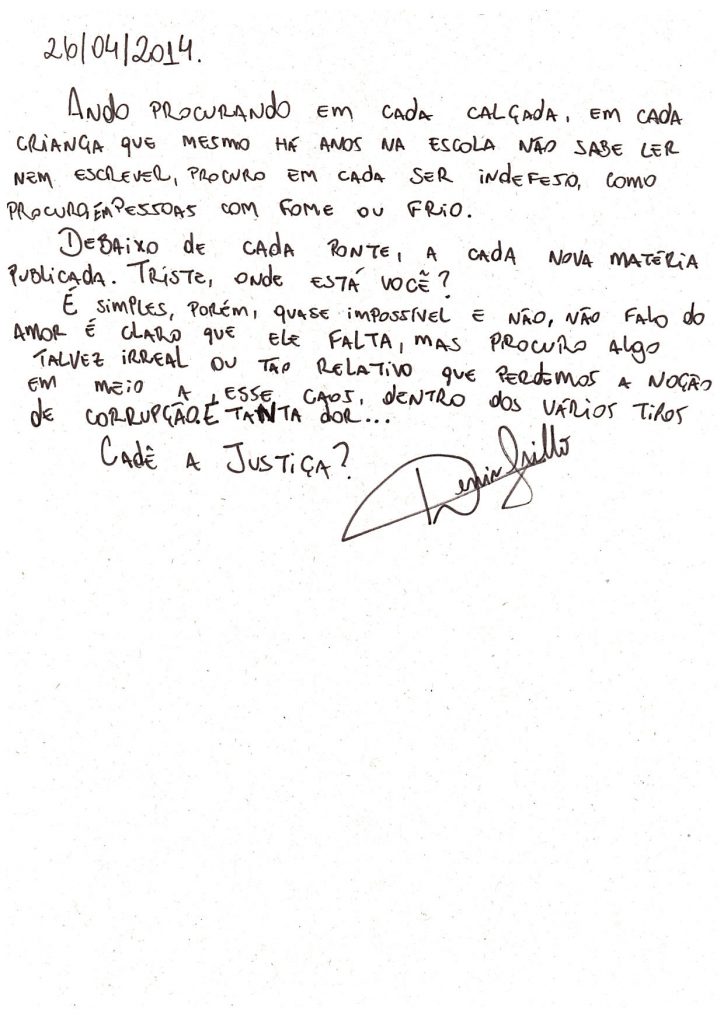 26/04/2014.
ANDO PROCURANDO EM CADA CALÇADA, EM CADA
CRIANÇA QUE MESMO HÁ ANOS NA ESCOLA NÃO SABE LER
NEM ESCREVER, PROCURO EM CADA SER INDEFESO, COMO
PROCURO EM PESSOAS COM FOME OU FRIO.
DEBAIXO DE CADA PONTE, A CADA NOVA MATÉRIA
PUBLICADA. TRISTE, ONDE ESTÁ VOCÊ?
É SIMPLES, PORÉM, QUASE IMPOSSÍVEL E NÃO, NÃO FALO DO
AMOR É CLARO QUE ELE FALTA, MAS PROCURO ALGO
TALVEZ IRREAL OU TÃO RELATIVO QUE PERDEMOS A NOÇÃO
EM MEIO A ESSE CAOS, DENTRO DOS VÁRIOS TIPOS
DE CORRUPÇÃO. É TANTA DOR...
CADÊ A JUSTIÇA?